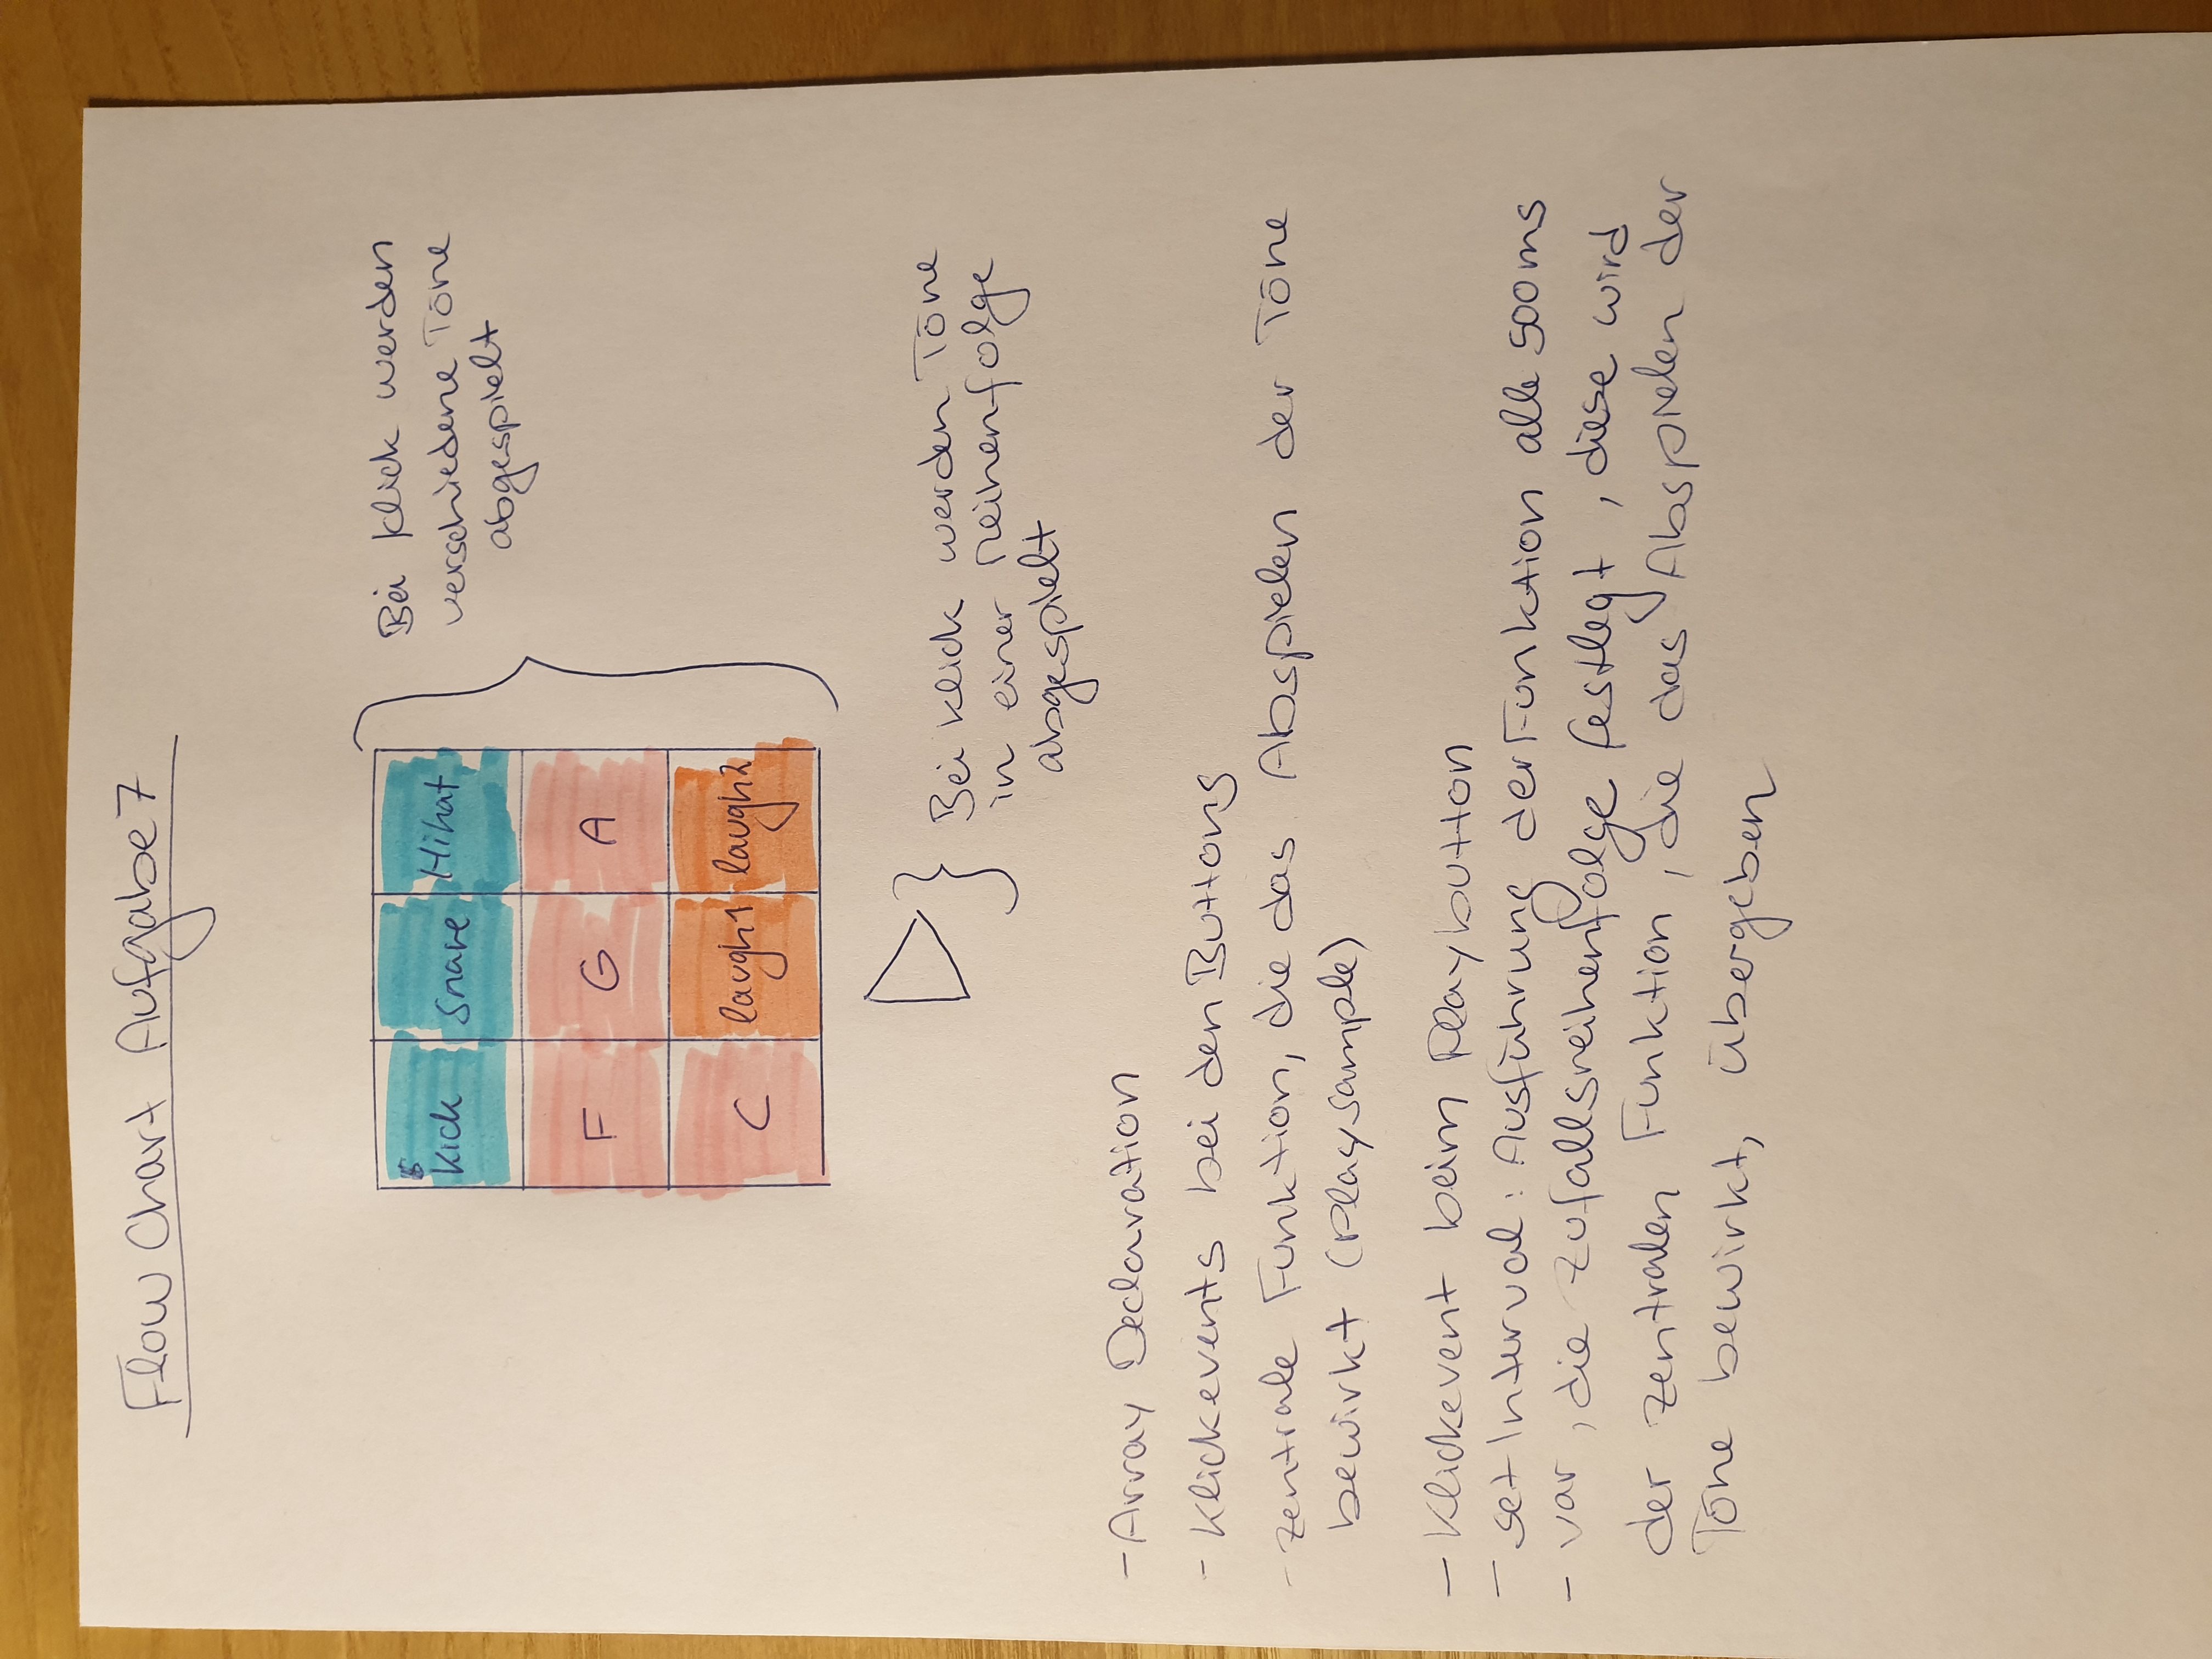 Flow Chart Aufgabe 7
Kick Snare Hihat
F G A
C laugh1 laugh2
Bei Klick werden
verschiedene Töne
abgespielt
Bei Klick werden Töne
in einer Reihenfolge
abgespielt
- Array Declaration
- Klickevents bei den Buttons
- zentrale Funktion, die das Abspielen der Töne
bewirkt (Playsample)
- Klickevent beim Playbutton
- setInterval: Ausführung der Funktion alle 500ms
- var, die Zufallsreihenfolge festlegt, diese wird
der zentralen Funktion, die das Abspielen der
Töne bewirkt, übergeben